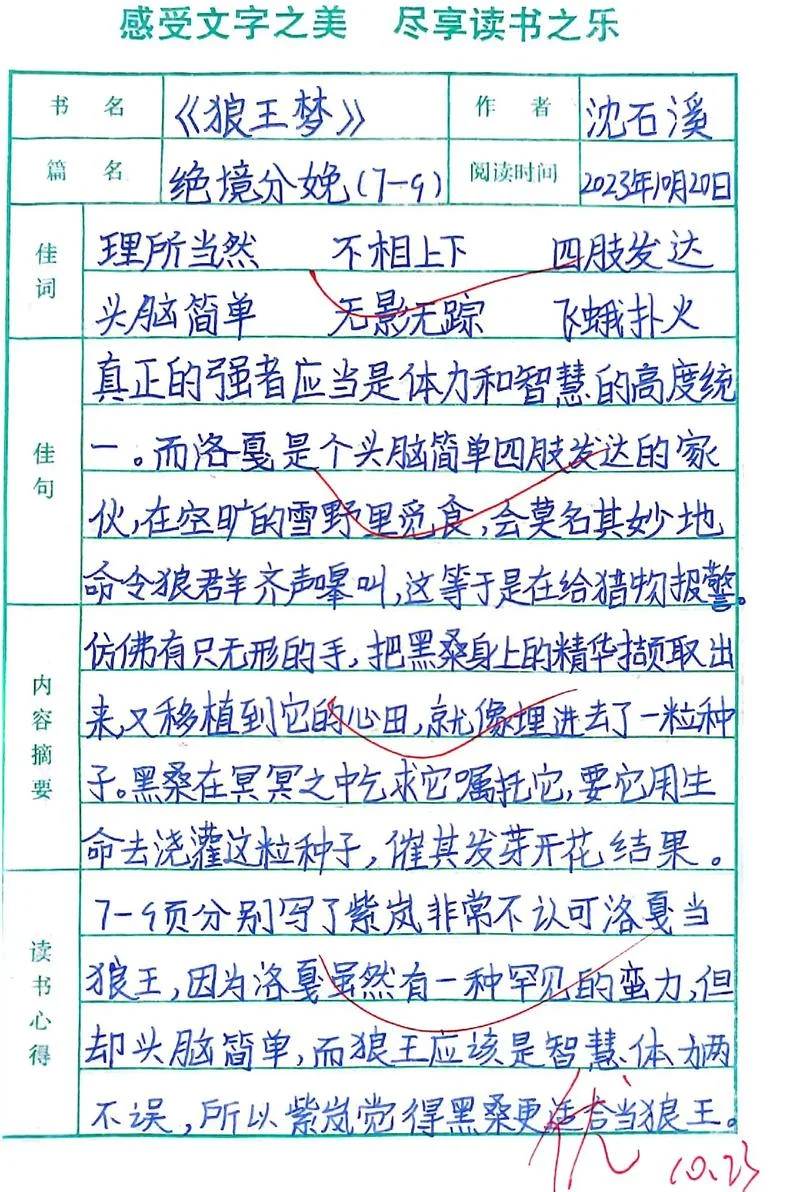 感受文字之美 尽享读书之乐
书名 《狼王梦》 作者 沈石溪
篇名 绝境分娩(7-9) 阅读时间 2023年10月20日
佳词
理所当然 不相上下 四肢发达
头脑简单 无影无踪 飞蛾扑火
佳句
真正的强者应当是体力和智慧的高度统
一。而洛戛是个头脑简单四肢发达的家
伙,在空旷的雪野里觅食,会莫名其妙地
命令狼群齐声嗥叫,这等于是在给猎物报警。
内容摘要
仿佛有只无形的手,把黑桑身上的精华撷取出
来,又移植到它的心田,就像埋进去了一粒种
子。黑桑在冥冥之中乞求它嘱托它,要它用生
命去浇灌这粒种子,催其发芽开花结果。
读书心得
7-9页分别写了紫岚非常不认可洛戛当
狼王,因为洛戛虽然有一种罕见的蛮力,但
却头脑简单,而狼王应该是智慧体力两
不误,所以紫岚觉得黑桑更适合当狼王。
优 10.23